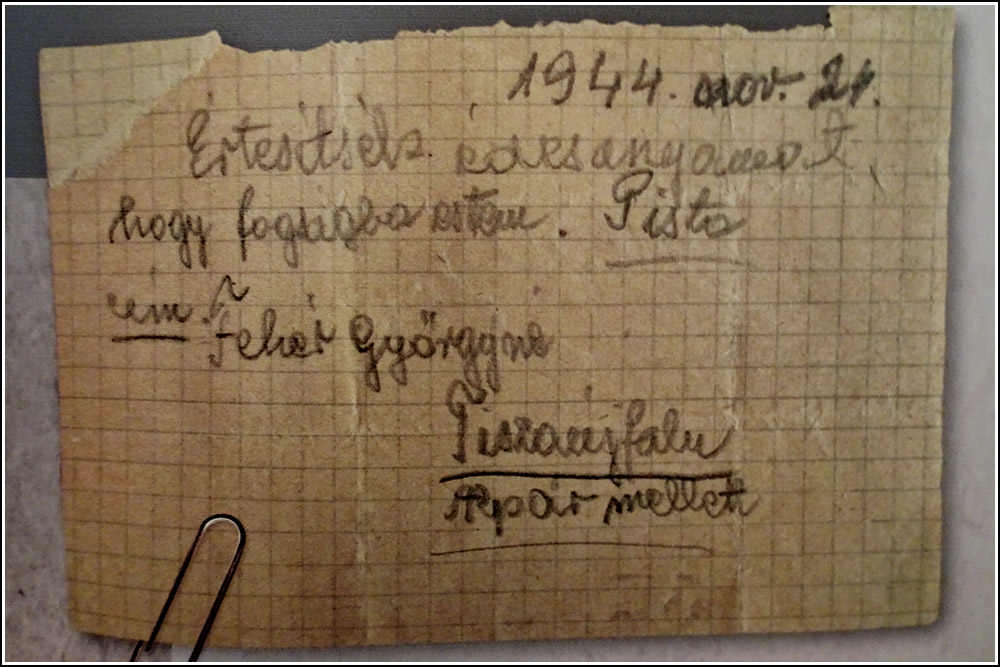 1944. nov. 21.
Értesítsék édesanyámat,
hogy fogságba estem. Pista
cím: Fehér Györgyné
Tiszaújfalu
Alpár mellett